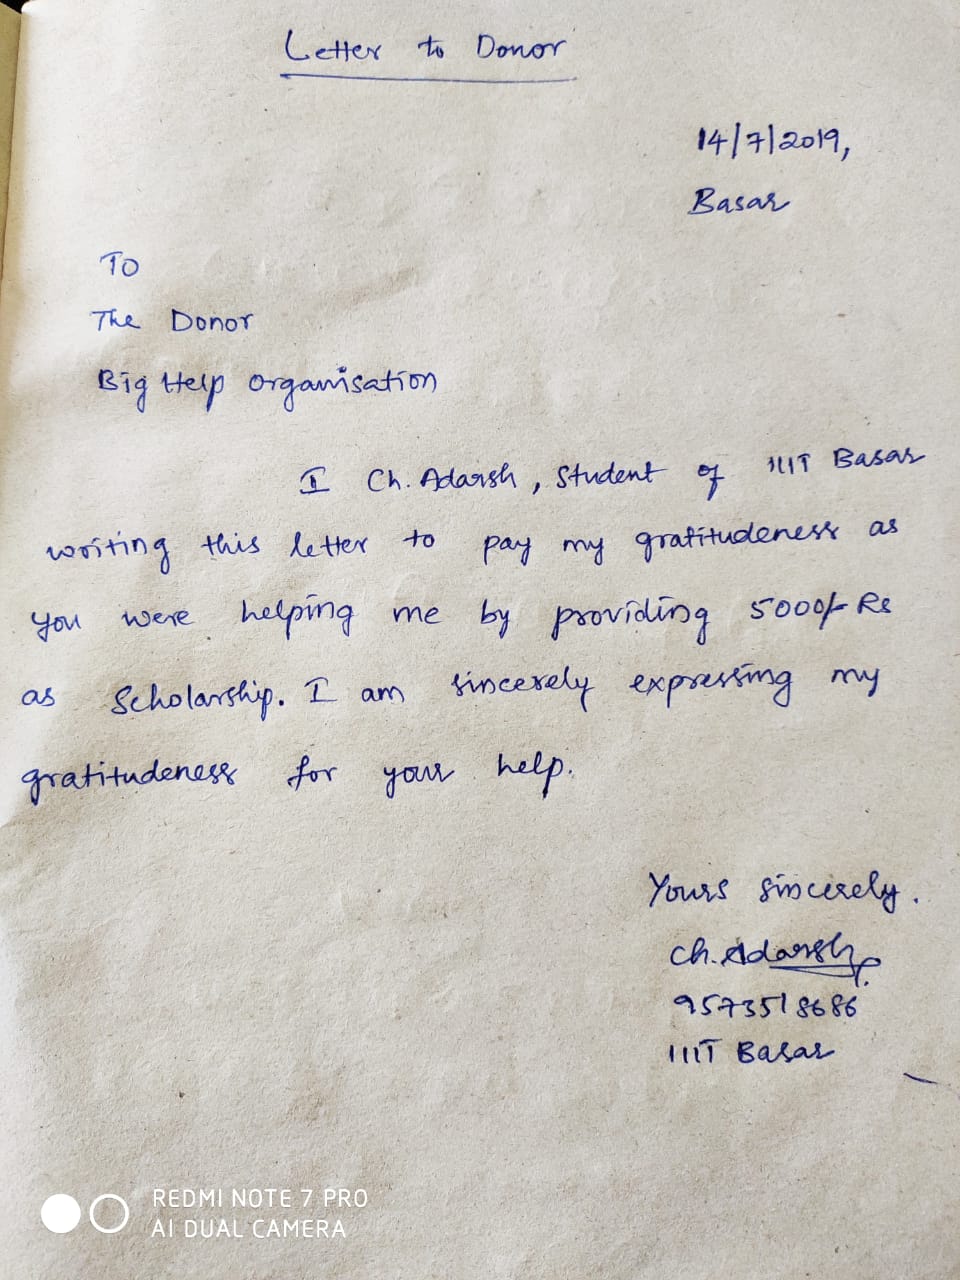 Letter to Donor
14/7/2019,
Basar
To
The Donor
Big Help organisation
I Ch. Adarsh, Student of IIIT Basar
writing this letter to pay my gratitudeness as
you were helping me by providing 5000/- Rs
as Scholarship. I am sincerely expressing my
gratitudeness for your help.
Yours sincerely.
Ch. Adarsh
9573518686
IIIT Basar
REDMI NOTE 7 PRO
AI DUAL CAMERA